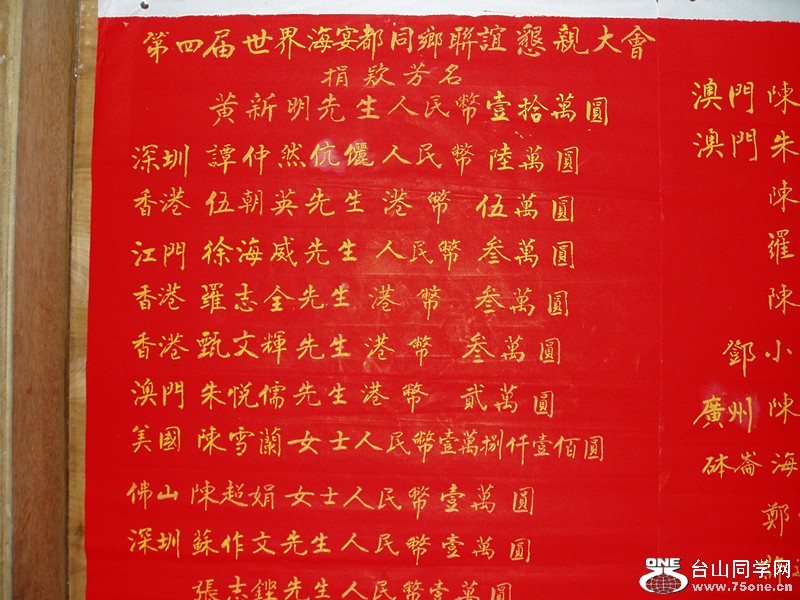 第四届世界海宴都同鄉聯誼懇親大會
捐款芳名
黄新明先生人民幣壹拾萬圓
深圳 譚仲然伉儷人民幣 陸萬圓
香港 伍朝英先生 港幣 伍萬圓
江門 徐海威先生 人民幣 叁萬圓
香港 羅志全先生 港幣 叁萬圓
香港 甄文輝先生 港幣 叁萬圓
澳門 朱悦儒先生 港幣 貳萬圓
美國 陳雪蘭女士人民幣壹萬捌仟壹佰圓
佛山 陳超娟女士人民幣壹萬圓
深圳 蘇作文先生人民幣壹萬圓
張志鏗先生人民幣壹萬圓
澳門 陳
澳門 朱
陳
羅
陳
鄧小
廣州 陳
砵崙 海
鄭
ONE
台山同学网
www.75one.cn